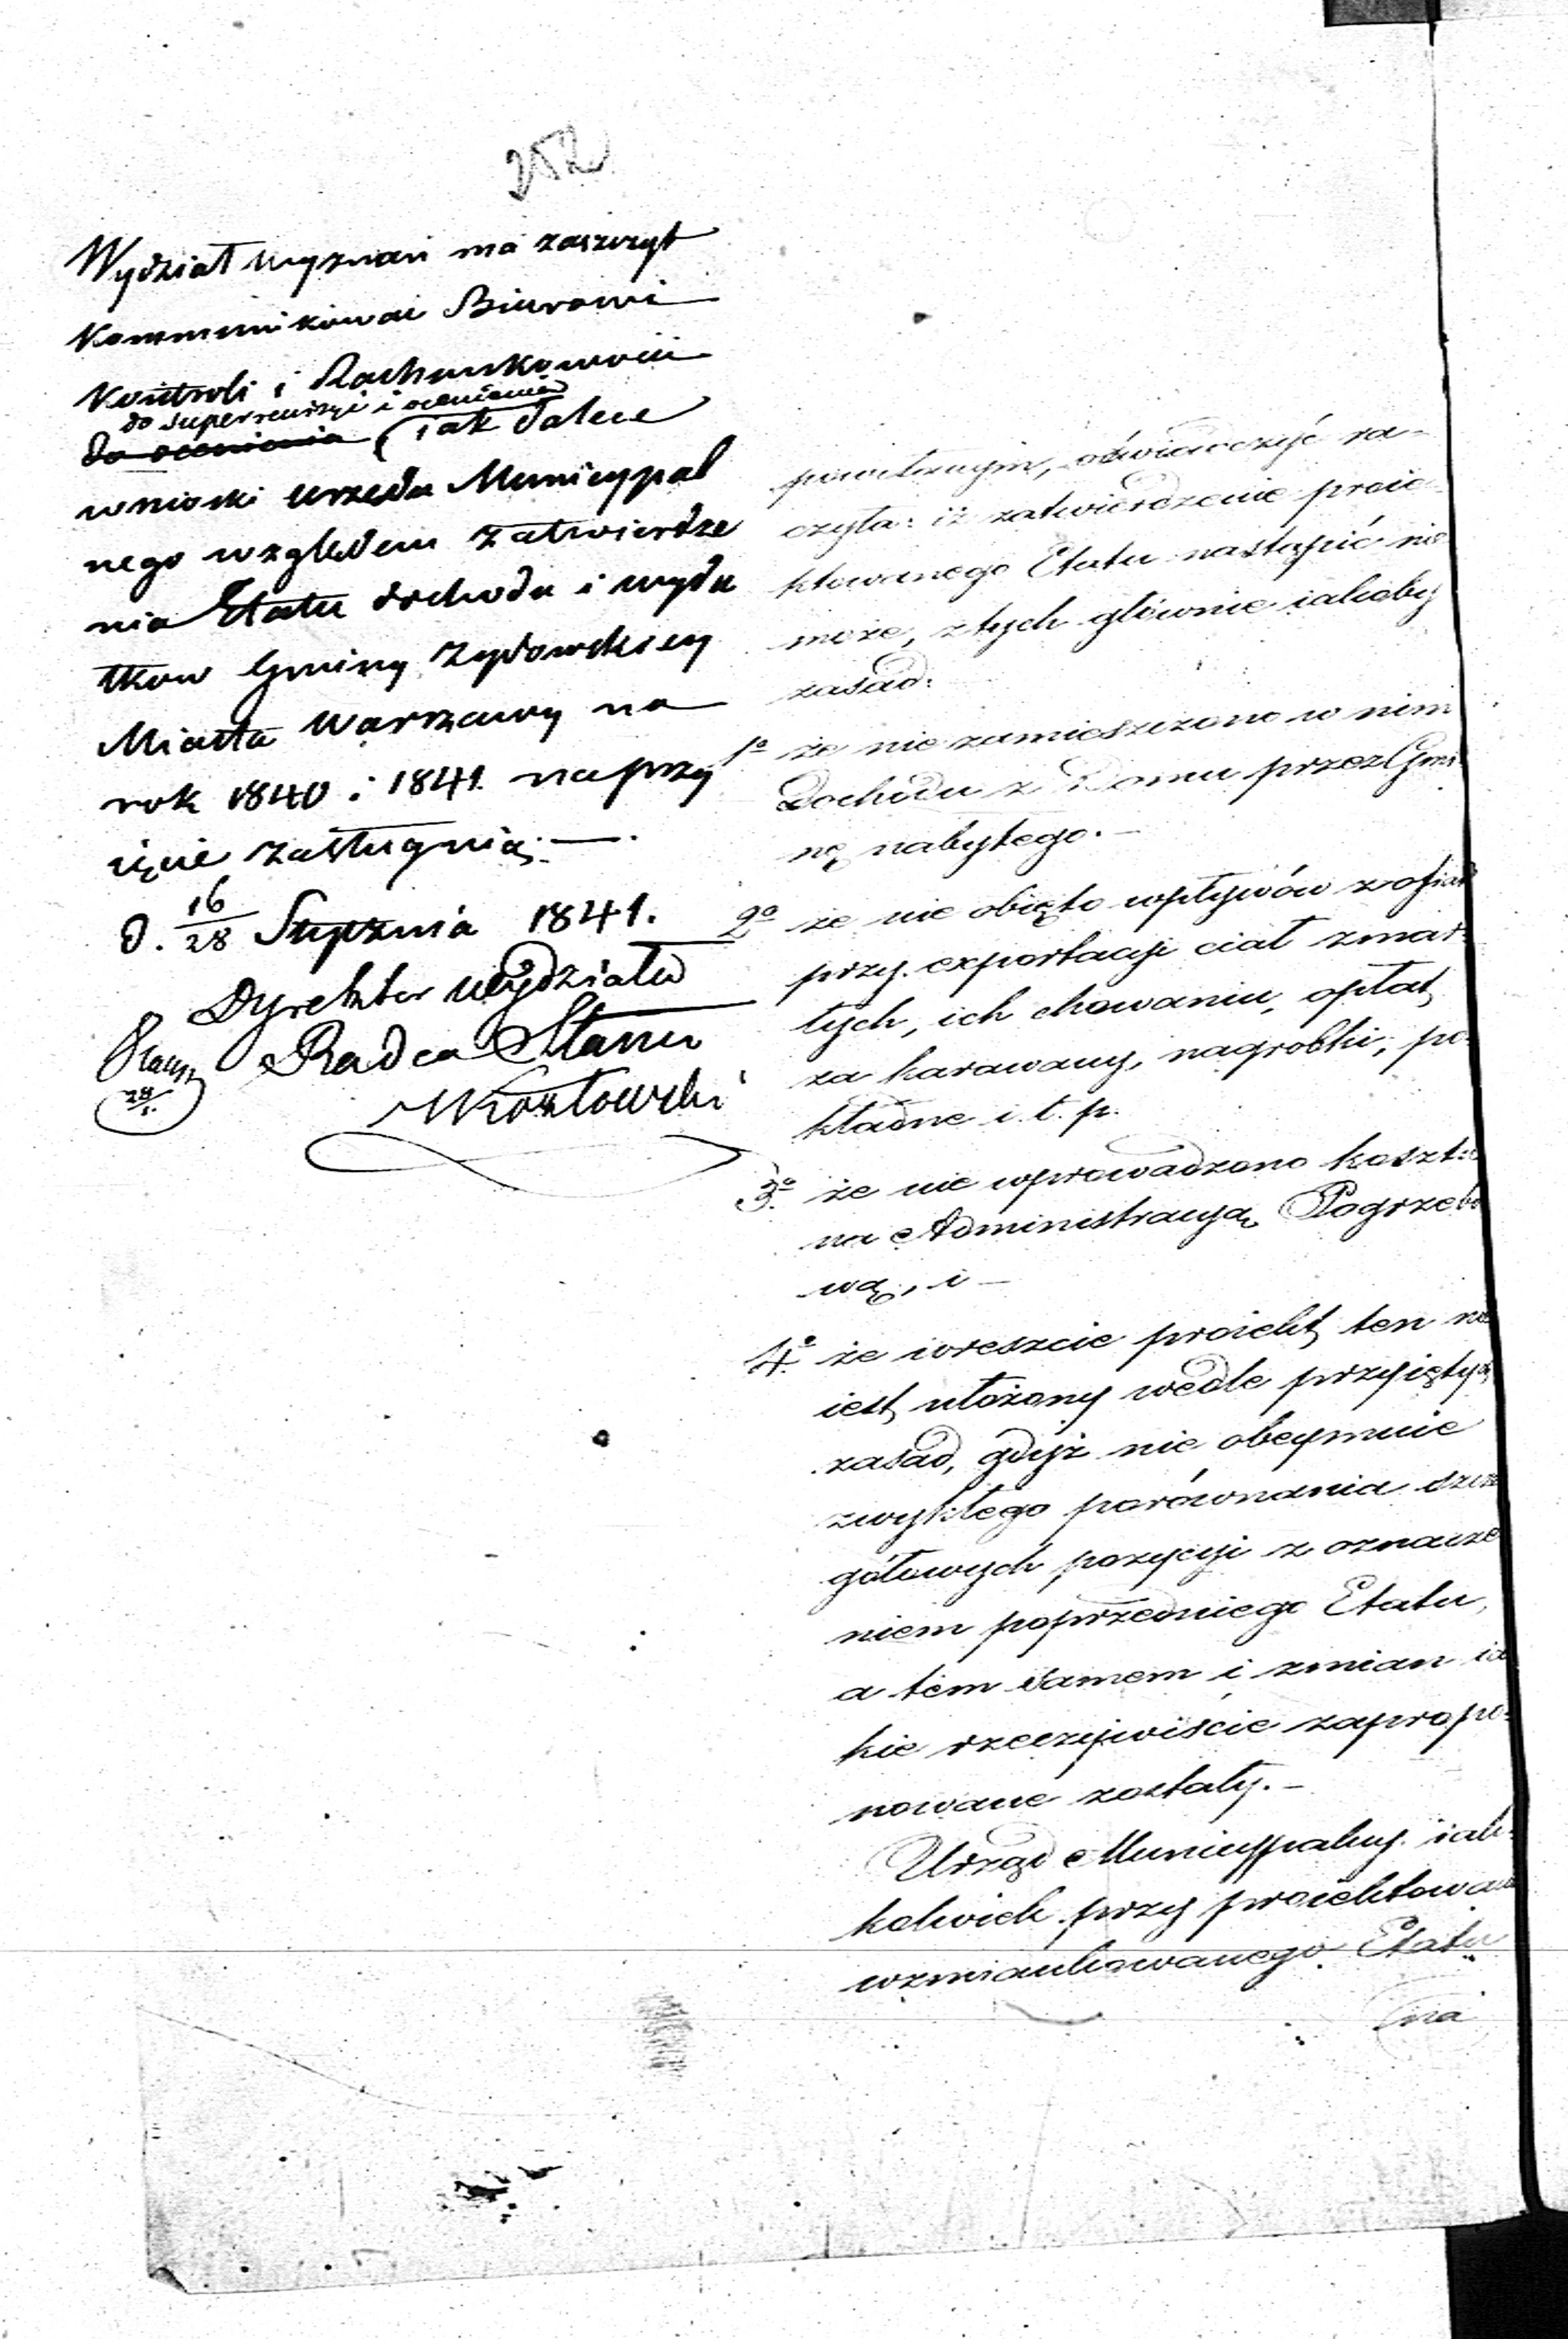 252
Wydział wyznań ma zaszczyt
kommunikować Biurowi
Kontroli i Rachunkowości
do superrewizyi i ocenienia
do ocenienia (iak dalece
wnioski urzędu Municypal
nego względem zatwierdze
nia Etatu dochodu i wyda
tkow Gminy Żydowskiey
Miasta Warszawy na
rok 1840 i 1841. na przy
ięcie zasługuią.—
d. 16/28 Stycznia 1841.
Dyrektor Wydziału
Radca Stanu
Kozłowski
28/1.
powołanym, oświadczyć ra-
czyła: iż zatwierdzenie proie
ktowanego Etatu nastąpić nie
może, z tych głównie iakoby
zasad:
1o że nie zamieszczono w nim
Dochodu z Domu przez Gmi
nę nabytego.—
2o że nie obięto wpływów z ofiar
przy exportacji ciał zmar-
łych, ich chowaniu, opłat
za karawany, nagrobki, po-
kładne i. t. p.
3o że nie wprowadzono koszt
na Administracyą Pogrzebo
wą, i —
4o że wreszcie proiekt ten nie
iest ułożony wedle przyiętych
zasad, gdyż nie obeymuie
zwykłego porównania szcze
gółowych pozycyi z oznacze
niem poprzedniego Etatu,
a tém samem i zmian ia
kie rzeczywiście zapropo-
nowane zostały.—
Urząd Municypalny iak-
kolwiek przy proiektowaniu
wzmiankowanego Etatu
na